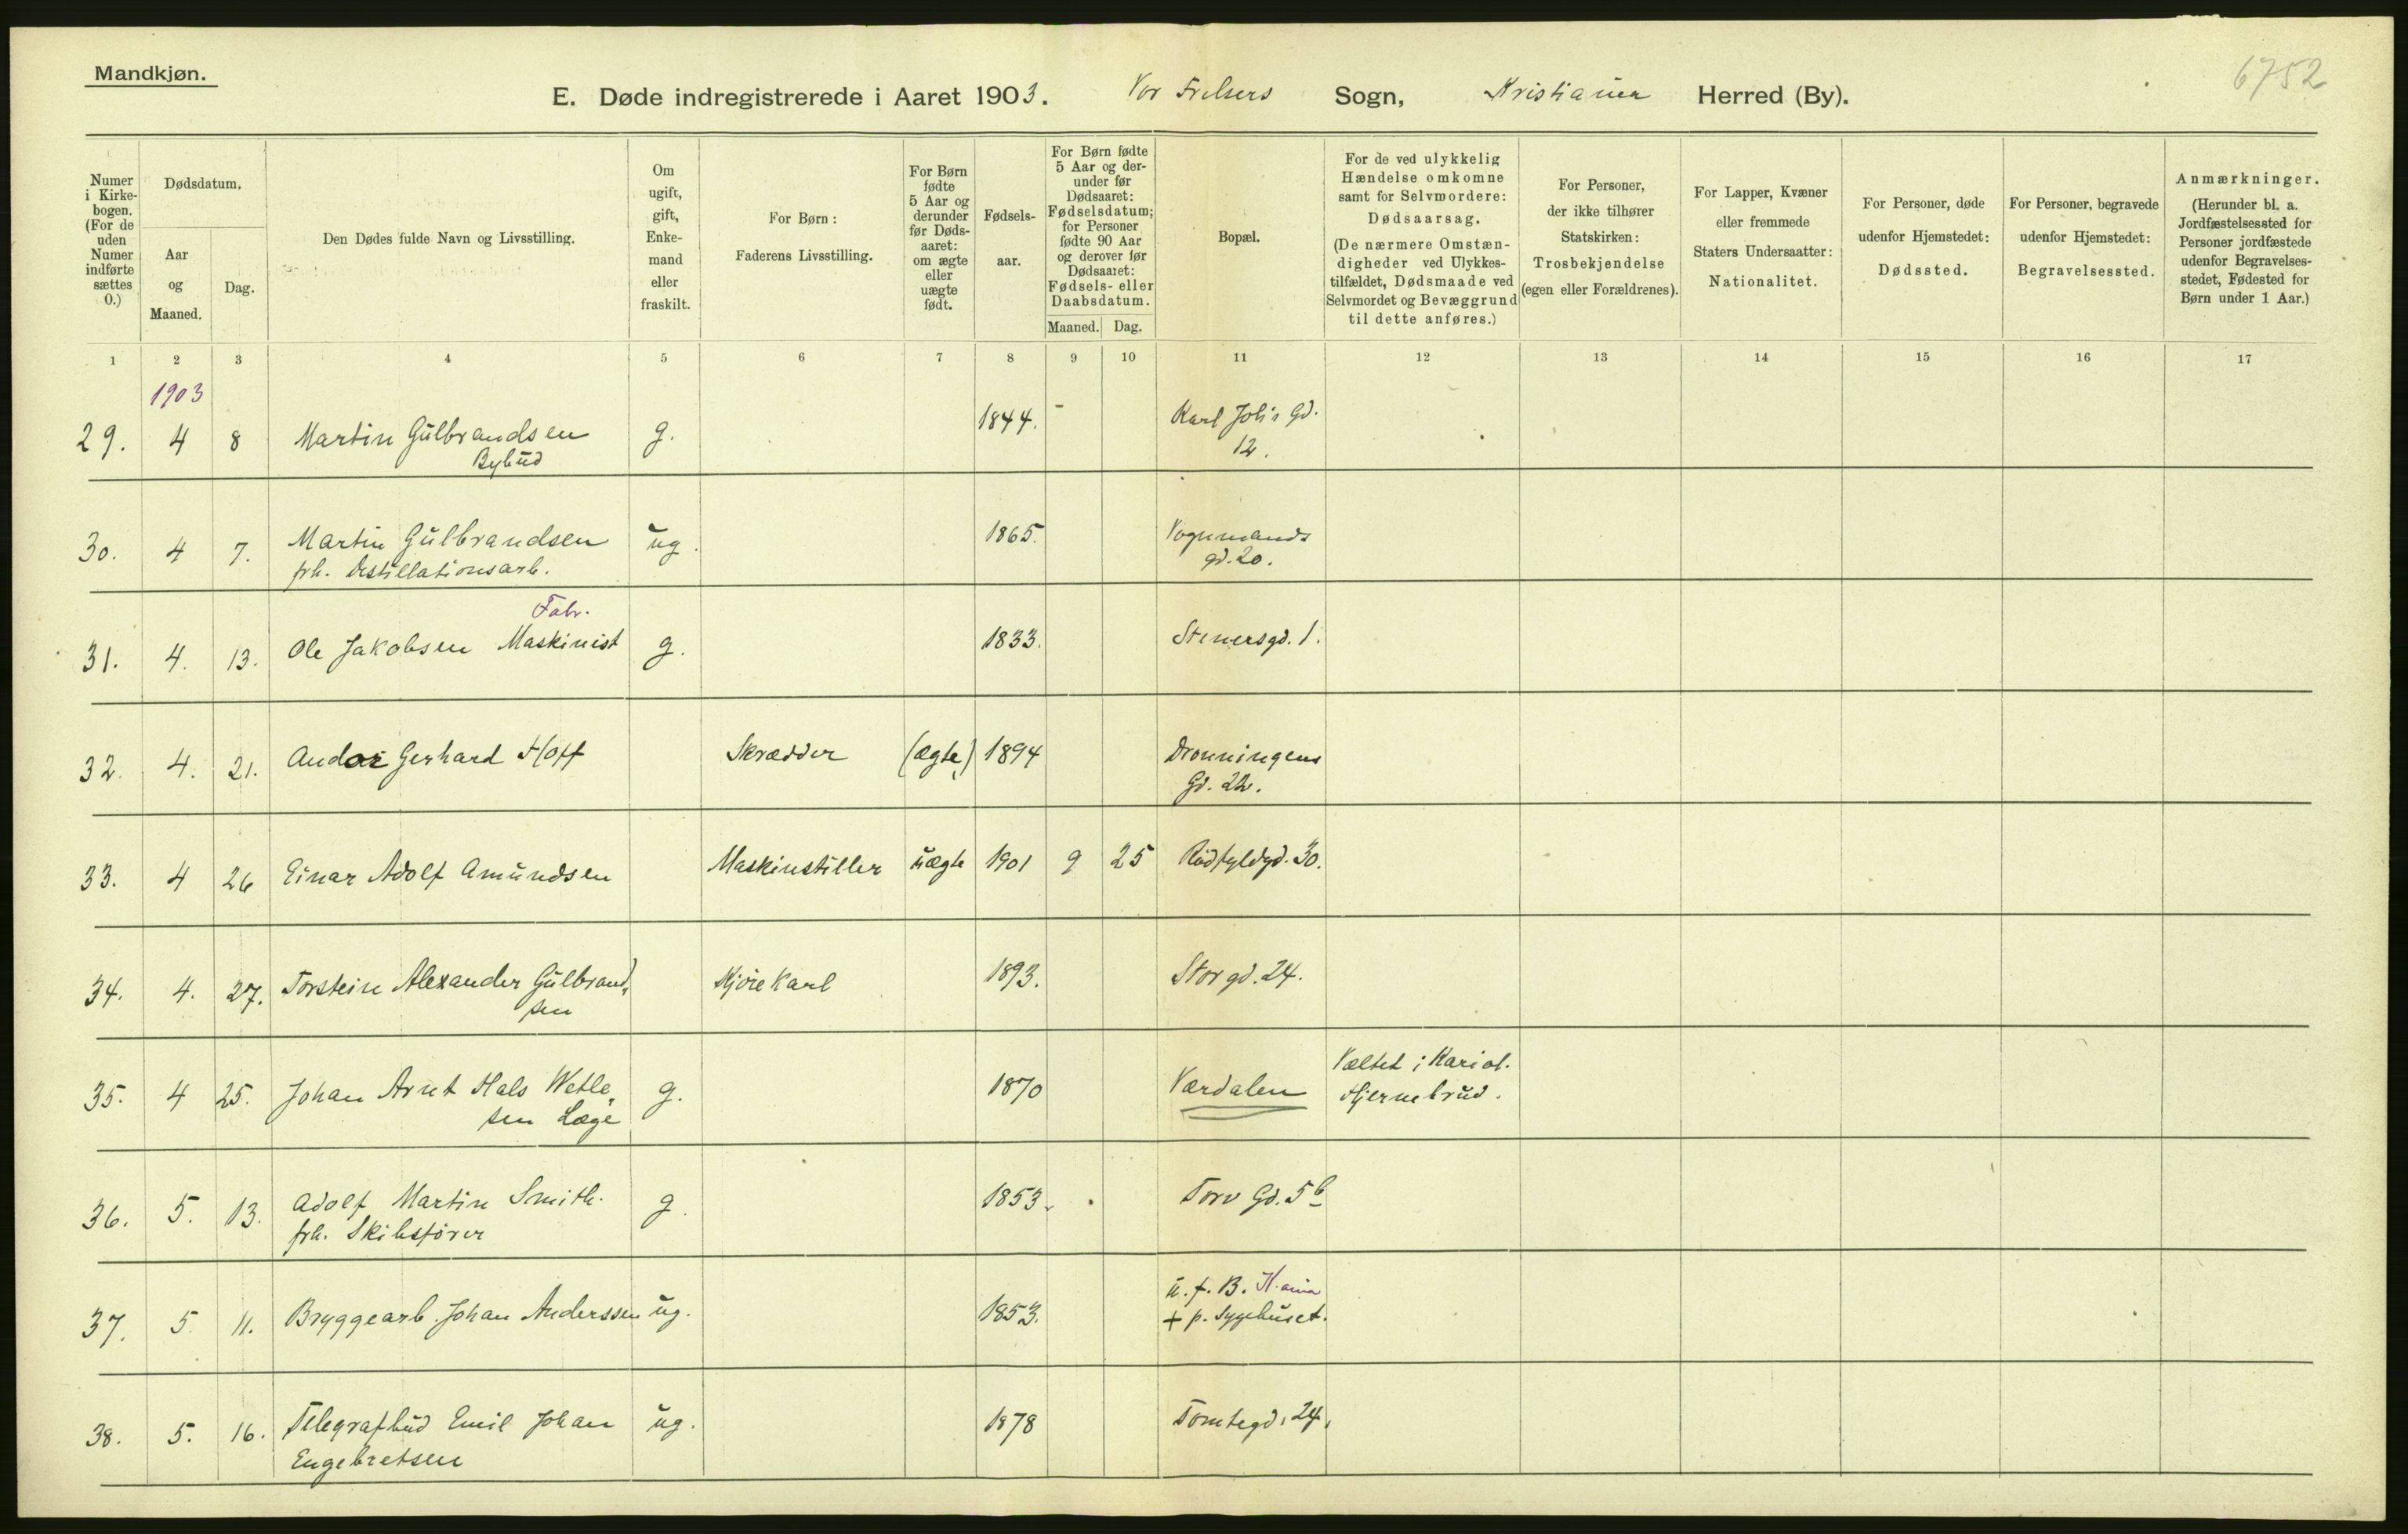 Mandkjøn.
6752
E. Døde indregistrerede i Aaret 1903. Vor Frelsers Sogn, Kristiania Herred (By).
Numer i Kirkebogen. (For de uden Numer indførte sættes 0.)
Dødsdatum.
Aar og Maaned.
Dag.
Den Dødes fulde Navn og Livsstilling.
Om ugift, gift, Enkemand eller fraskilt.
For Børn: Faderens Livsstilling.
For Børn fødte 5 Aar og derunder før Dødsaaret: om ægte eller uægte født.
Fødselsaar.
For Børn fødte 5 Aar og derunder før Dødsaaret: Fødselsdatum; for Personer fødte 90 Aar og derover før Dødsaaret: Fødsels- eller Daabsdatum.
Maaned. Dag.
Bopæl.
For de ved ulykkelig Hændelse omkomne samt for Selvmordere: Dødsaarsag. (De nærmere Omstændigheder ved Ulykkestilfældet, Dødsmaade ved Selvmordet og Bevæggrund til dette anføres.)
For Personer, der ikke tilhører Statskirken: Trosbekjendelse (egen eller Forældrenes).
For Lapper, Kvæner eller fremmede Staters Undersaatter: Nationalitet.
For Personer, døde udenfor Hjemstedet: Dødssted.
For Personer, begravede udenfor Hjemstedet: Begravelsessted.
Anmærkninger. (Herunder bl. a. Jordfæstelsessted for Personer jordfæstede udenfor Begravelsesstedet, Fødested for Børn under 1 Aar.)
1 2 3 4 5 6 7 8 9 10 11 12 13 14 15 16 17
1903
29. 4 8 Martin Gulbrandsen g. 1844. - Karl Joh's Gd.
Bybud 12.
30. 4 7. Martin Gulbrandsen ug. 1865. Vognmands
frh. Destillationsarb. gd. 20.
Fabr.
31. 4. 13. Ole Jakobsen Maskinist g. 1833. Stenersgd. 1.
32. 4. 21. Andor Gerhard Hoff Skrædder (ægte) 1894 Dronningens
Gd. 22.
33. 4 26 Einar Adolf Amundsen Maskinstiller uægte 1901 9 25 Rødfyldgd. 30.
34. 4. 27. Torstein Alexander Gulbrand- Kjørekarl 1893. Storgd. 24.
sen
35. 4 25. Johan Arnt Hals Wetle- g. 1870 Værdalen Væltet i Kariol.
sen Læge Hjernebrud.
36. 5. 13. Adolf Martin Smith. g. 1853. Torv Gd. 5b
frh. Skibsfører
37. 5 11. Bryggearb. Johan Anderssen ug. 1853. u. f. B. K.ania
+ p. Sygehuset.
38. 5. 16. Telegrafbud Emil Johan ug. 1878 Tomtegd. 24.
Engebretsen